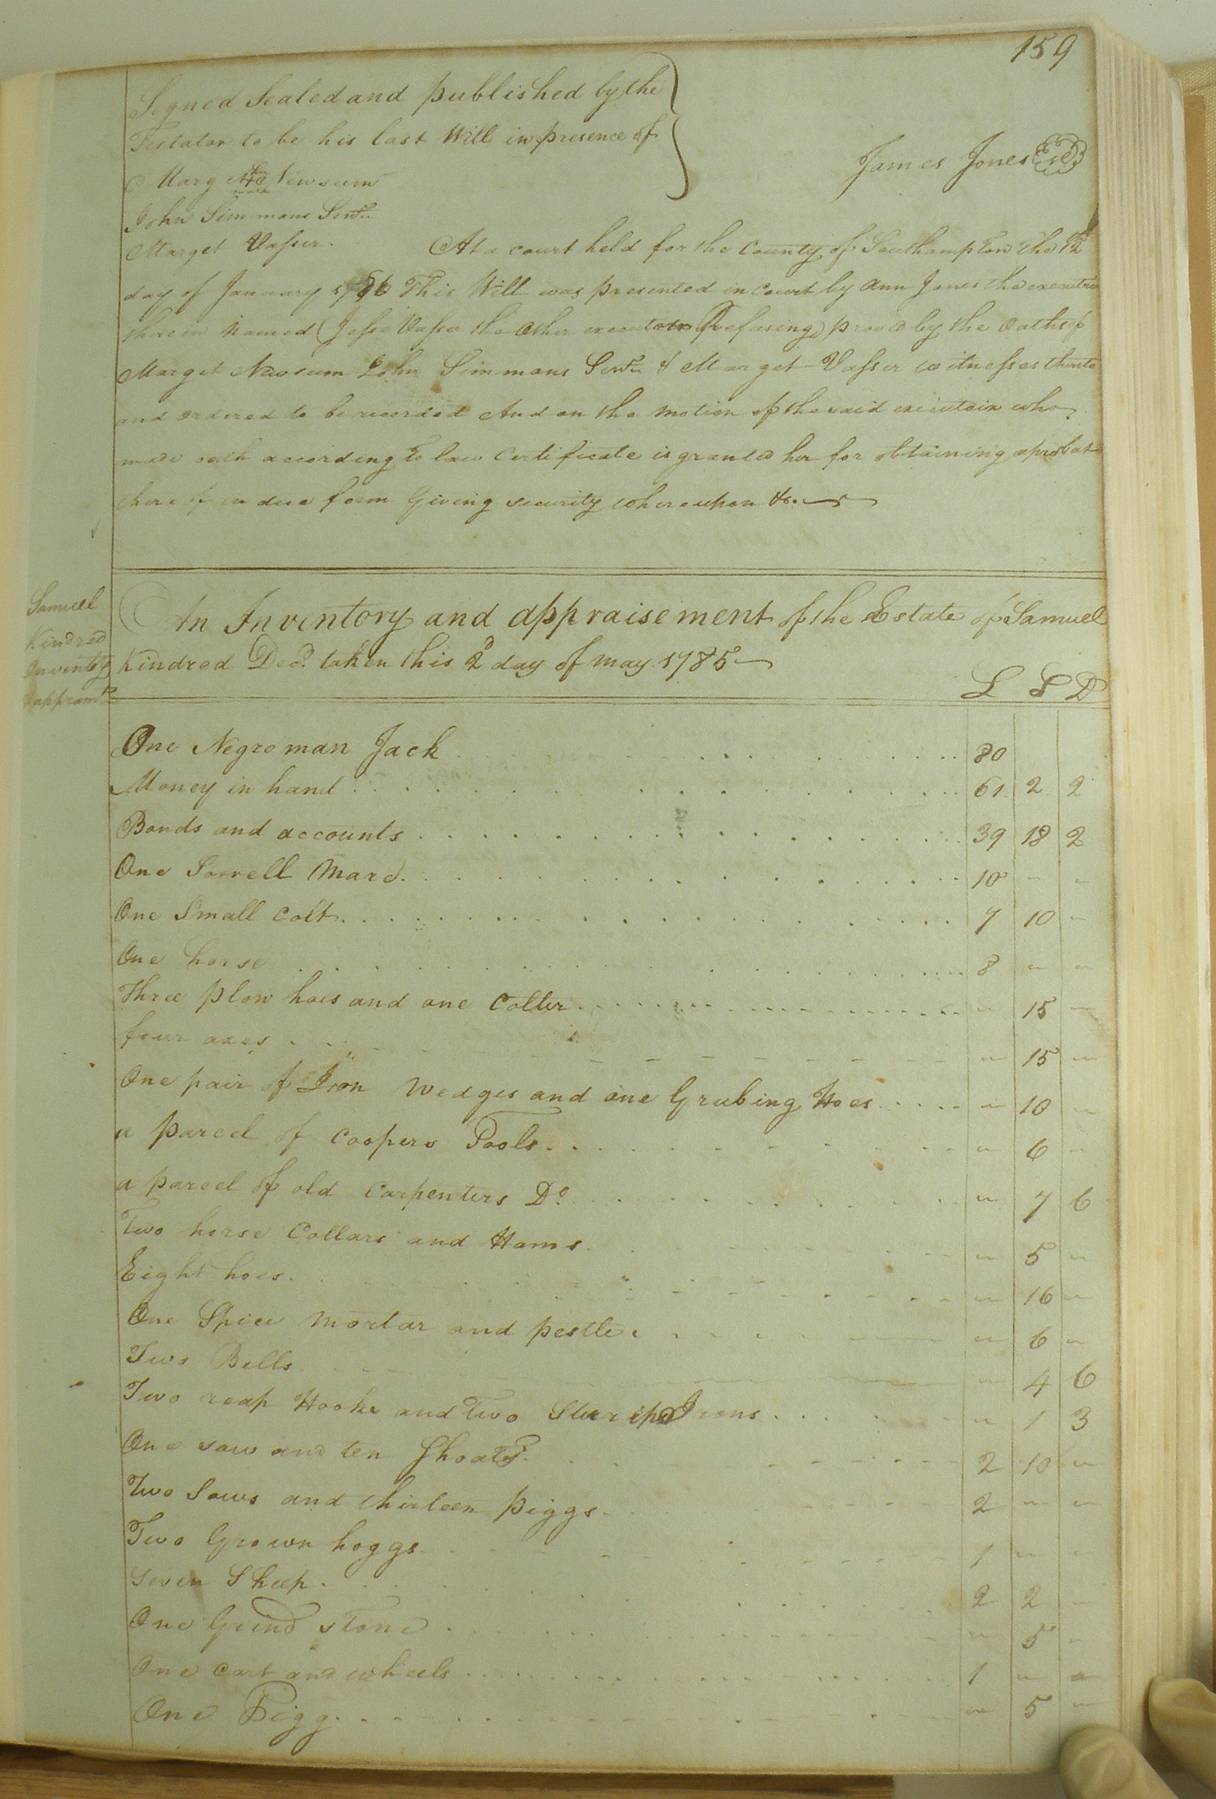 159
Signed Sealed and published by the
Testator to be his last Will in presence of
James Jones
Marg Newsum
John Simmans Senr
Marget Vasser. At a court held for the County of Southampton the 12
day of January 1786 This Will was presented in Court by Ann Jones the executrix
therein Named (Jesse Vasser the other executor Refusing) proved by the Oaths of
Marget Newsum John Simmans Senr & Marget Vasser witnesses thereto
and ordered to be recorded And on the Motion of the said executrix who
made oath according to law Certificate is granted her for obtaining a probat
thereof in due form Giving security whereupon &c.
Samuel
Kindred
Inventory
& appramt
An Inventory and appraisement of the Estate of Samuel
Kindred Decd. taken this 2d day of May 1785
L S D
One Negro man Jack 80
Money in hand 61 2 2
Bonds and accounts 39 18 2
One Sorrell Mare 10 - -
One Small Colt 7 10 -
One horse 8 - -
Three plow hoes and one Colter - 15 -
four axes - 15 -
One pair of Iron Wedges and one Grubing Hoes - 10 -
a parcel of coopers Tools - 6 -
a parcel of old Carpenters Do - 7 6
Two horse Collars and Hams - 5 -
Eight hoes - 16 -
One Spice Mortar and pestle - 6 -
Two Bells - 4 6
Two reap Hooks and Two Sturip Irons - 1 3
One sow and ten Shoats 2 10 -
Two Sows and thirteen piggs 2 - -
Two Grown hoggs 1 - -
Seven Sheep 2 2 -
One Grind stone - 5 -
One Cart and wheels 1 - -
One Pigg - 5 -